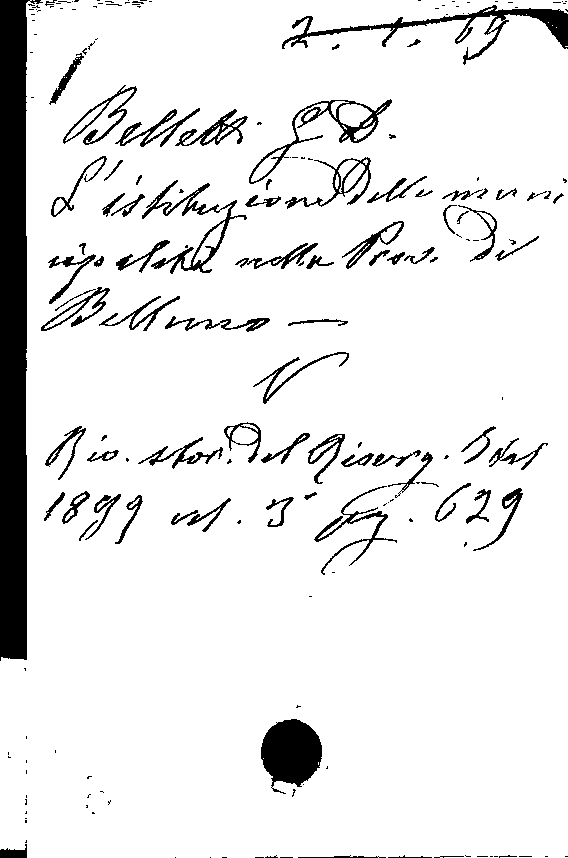 2. 1. 69
Belletti G D.
L'istituzione delle muni
cipalità nella Prov. di
Belluno —
V
Riv. stor. del Risorg. Ital
1899 vol. 3° pag. 629